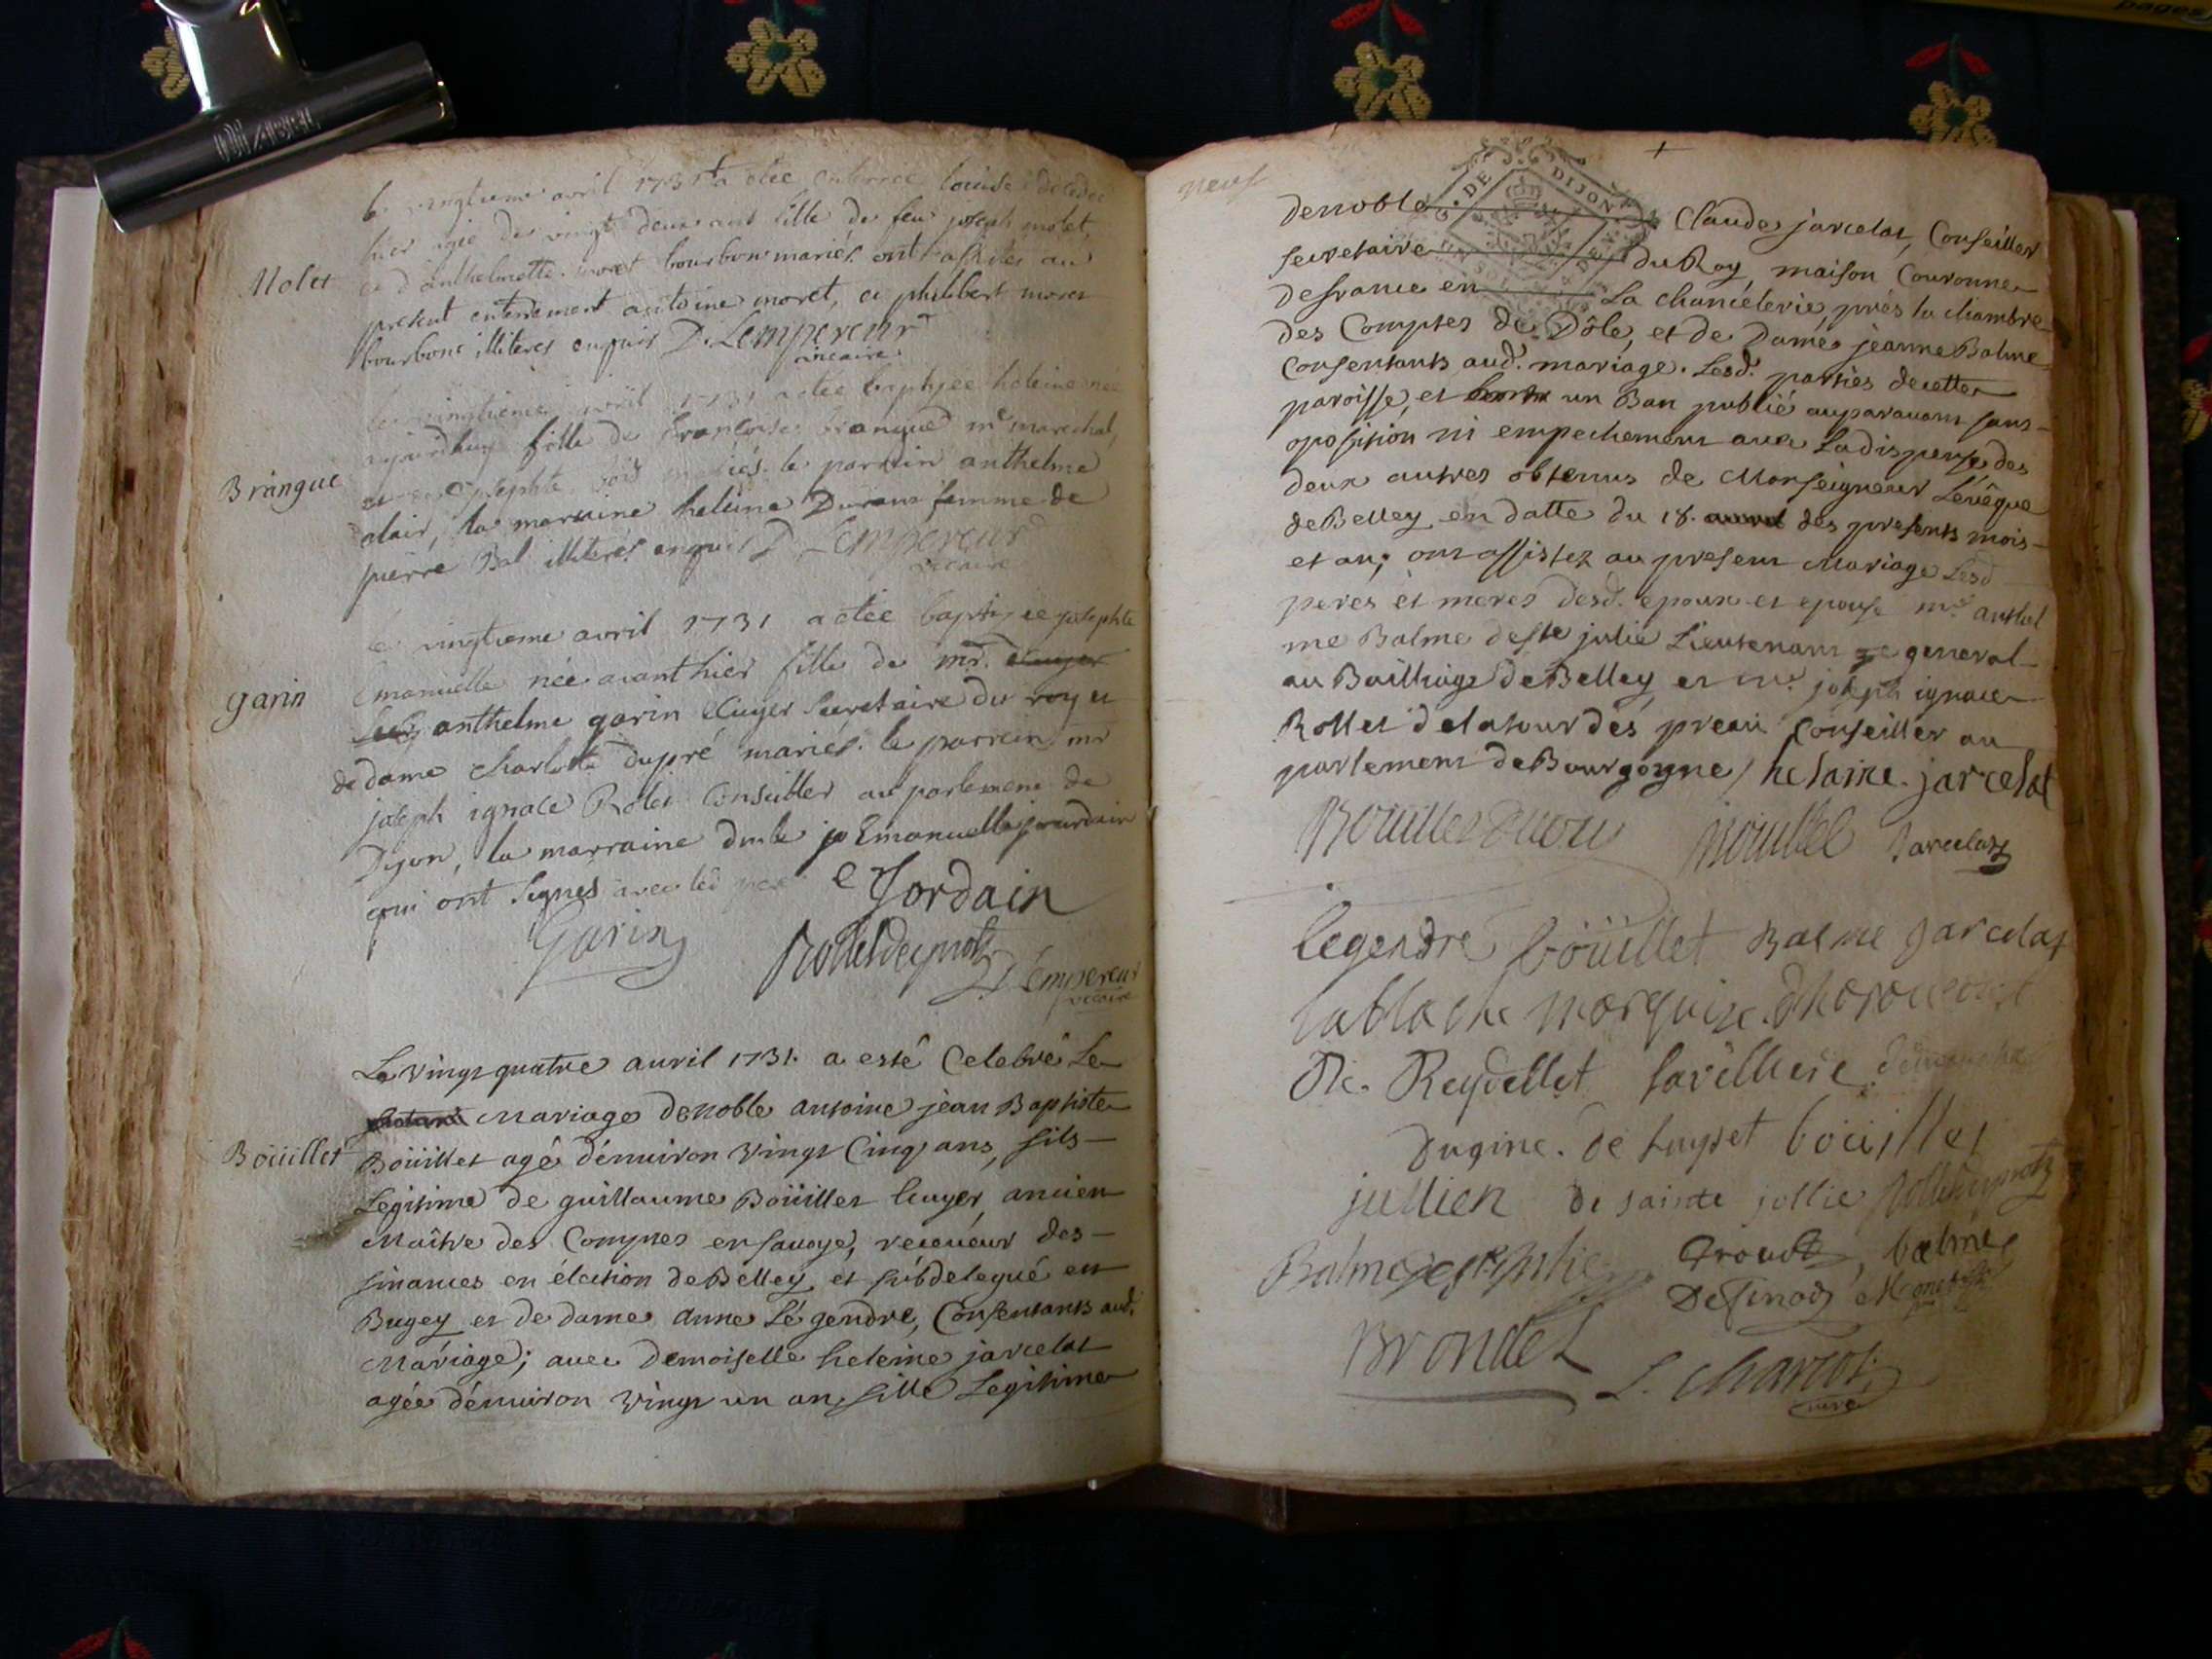 vingtieme avril 1731 a etée enterrée louise decedée
hier agée de vingt deux ans fille de feu joseph molet,
Molet
et d'anthelmette moret bourbon mariés. ont assistés au
present enterrement antoine moret, et philibert moret
bourbons illiteres enquis D. Lempereur
vicaire
le vingtieme avril 1731 a etée baptisée heleine née
aujourdhuy fille de françois brangue me marechal,
Brangue
et de josephte mariés. le parrain anthelme
clair, la marraine heleine Durand femme de
pierre Bal illiterés enquis D. Lempereur
vicaire
le vingtieme avril 1731 a etée baptisée josephte
Emanuelle née avant hier fille de mr. ecuyer
garin
anthelme garin Ecuyer secretaire du roy et
de dame charlotte dupré mariés. le parrein mr
joseph ignace Rolet Conseiller au parlement de
Dijon, la marraine dmlle jo Emanuelle jourdain
qui ont signés avec led pere e Jordain
Garin
Rolletdespnots
D. Lempereur
vicaire
Le vingt quatre avril 1731. a esté Celebré Le
Mariage de noble antoine jean Baptiste
Boüillet
Boüillet agé d'environ vingt Cinq ans, fils
Legitime de guillaume Boüillet Ecuyer, ancien
Maître des Comptes en savoye, receveur des
finances en élection de Belley et subdelegué en
Bugey et de dame anne Légendre, Consentants aud.
Mariage; avec Demoiselle heleine jarcelat
agée d'environ vingt un an, fille Legitime
neuf
G. DE DIJON
de noble Claude jarcelat, Conseiller
secretaire du Roy, maison Couronne
de france en La chancélerie près la chambre
des Comptes de Dôle, et de Dame jeanne Balme
Consentants aud. mariage. Lesd. parties de cette
paroisse, et un Ban publié auparavant sans
oposition ni empechement avec La dispense des
deux autres obtenus de Monseigneur L'évêque
de Belley en datte du 18. des presents mois
et an; ont assistez au present Mariage Lesd
peres et meres desd. epoux et epouse mr. anthel
me Balme de ste julie Lieutenant general
au Bailliage de Belley et mr. joseph ignace
Rollet de la tour des preau Conseiller au
parlement de Bourgogne / helaine. jarcelat
Boüillet
Boüillet Jarcelat
legendre boüillet Balme jarcelat
lablache marquize.
Reydellet
Dugine. de luyset boüillet
jullien de sainte jollie Rolletdespnots
Balme de ste julie balme
Brondel L. charcot
curé